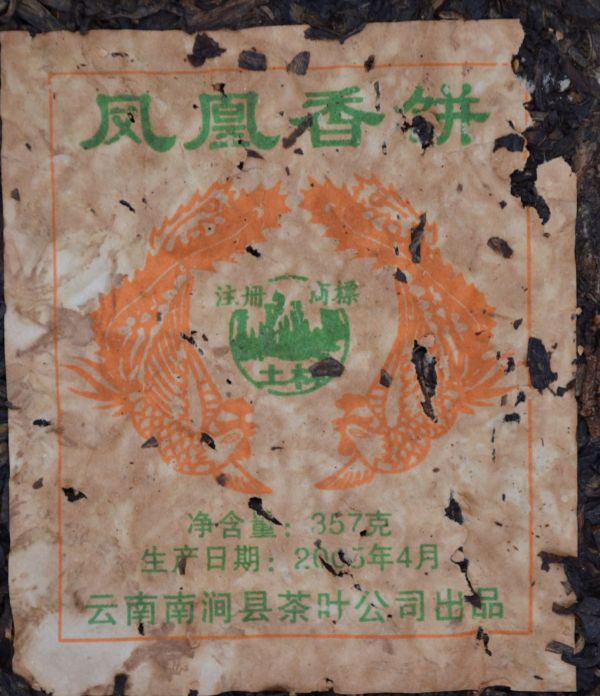 凤凰香饼
注册 商標
土林
净含量：357克
生产日期：2005年4月
云南南涧县茶叶公司出品